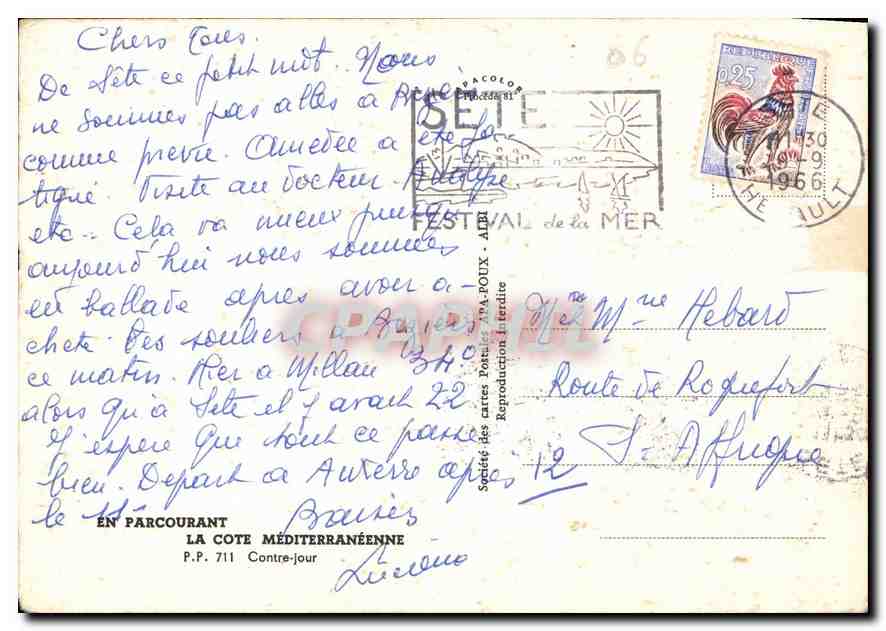 Chers Tous.
De Sète ce petit mot. Nous
ne sommes pas allés à
comme prévu. Amédée a été fa
tigué. Visite au docteur.
etc.. Cela va mieux puisqu'
aujourd'hui nous sommes
en ballade après avoir a-
cheté des souliers à Béziers
ce matin. Hier à Millau 34.°
alors qu'à Sète il y avait 22
J'espère que tout ce passe
bien. Départ à Auterre après
le 11- 12
Baisers
Lucienne
EN PARCOURANT
LA COTE MÉDITERRANÉENNE
P.P. 711 Contre-jour
APACOLOR
Procédé 81
Société des cartes Postales APA-POUX - ALBI
Reproduction Interdite
06
SETE
FESTIVAL de la MER
REPUBLIQUE
0,25
SETE
30
-9
1966
HERAULT
CPAPHIL
Mr Mme Hebard
Route de Roquefort
St Affrique